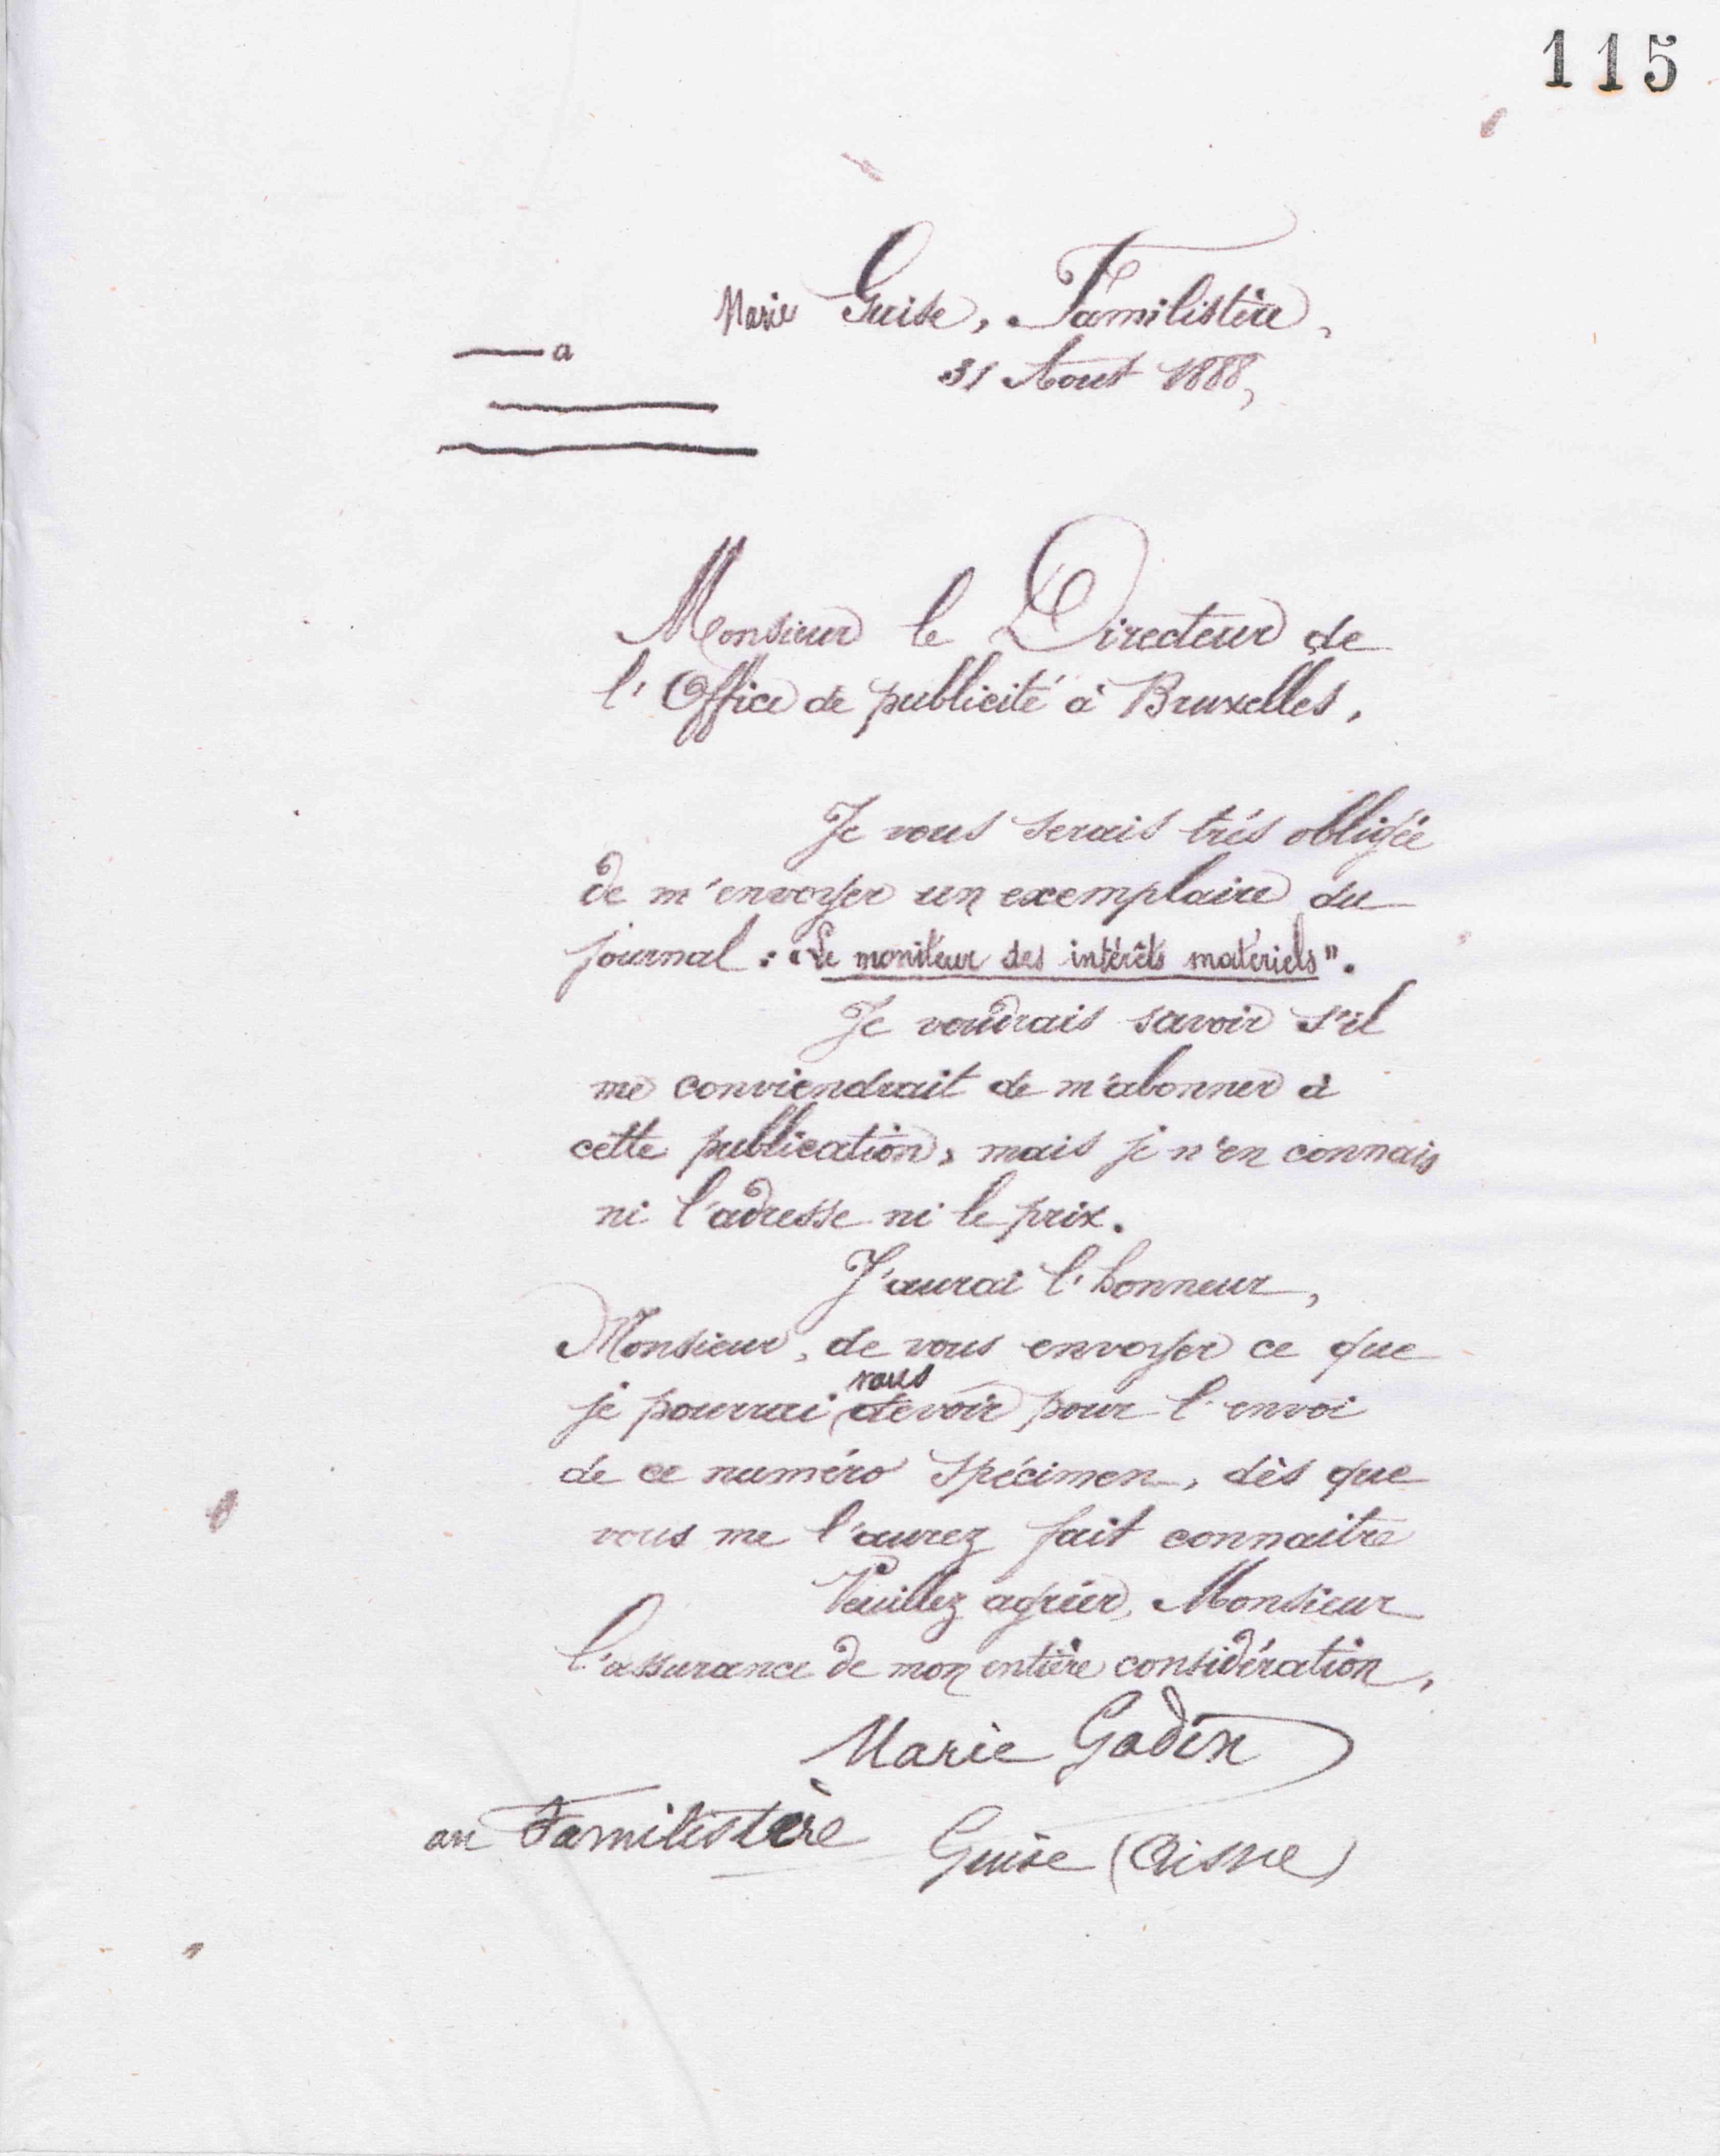 115
Marie Guise, Familistère,
a
31 Aout 1888,
Monsieur le Directeur de
l'Office de publicité à Bruxelles,
Je vous serais très obligée
de m'envoyer un exemplaire du
journal : "Le moniteur des intérêts matériels".
Je voudrais savoir s'il
me conviendrait de m'abonner à
cette publication, mais je n'en connais
ni l'adresse ni le prix.
J'aurai l'honneur,
Monsieur, de vous envoyer ce que
je pourrai vous devoir pour l'envoi
de ce numéro spécimen, dès que
vous me l'aurez fait connaitre
Veuillez agréer, Monsieur
l'assurance de mon entière considération,
Marie Godin
au Familistère Guise (Aisne)